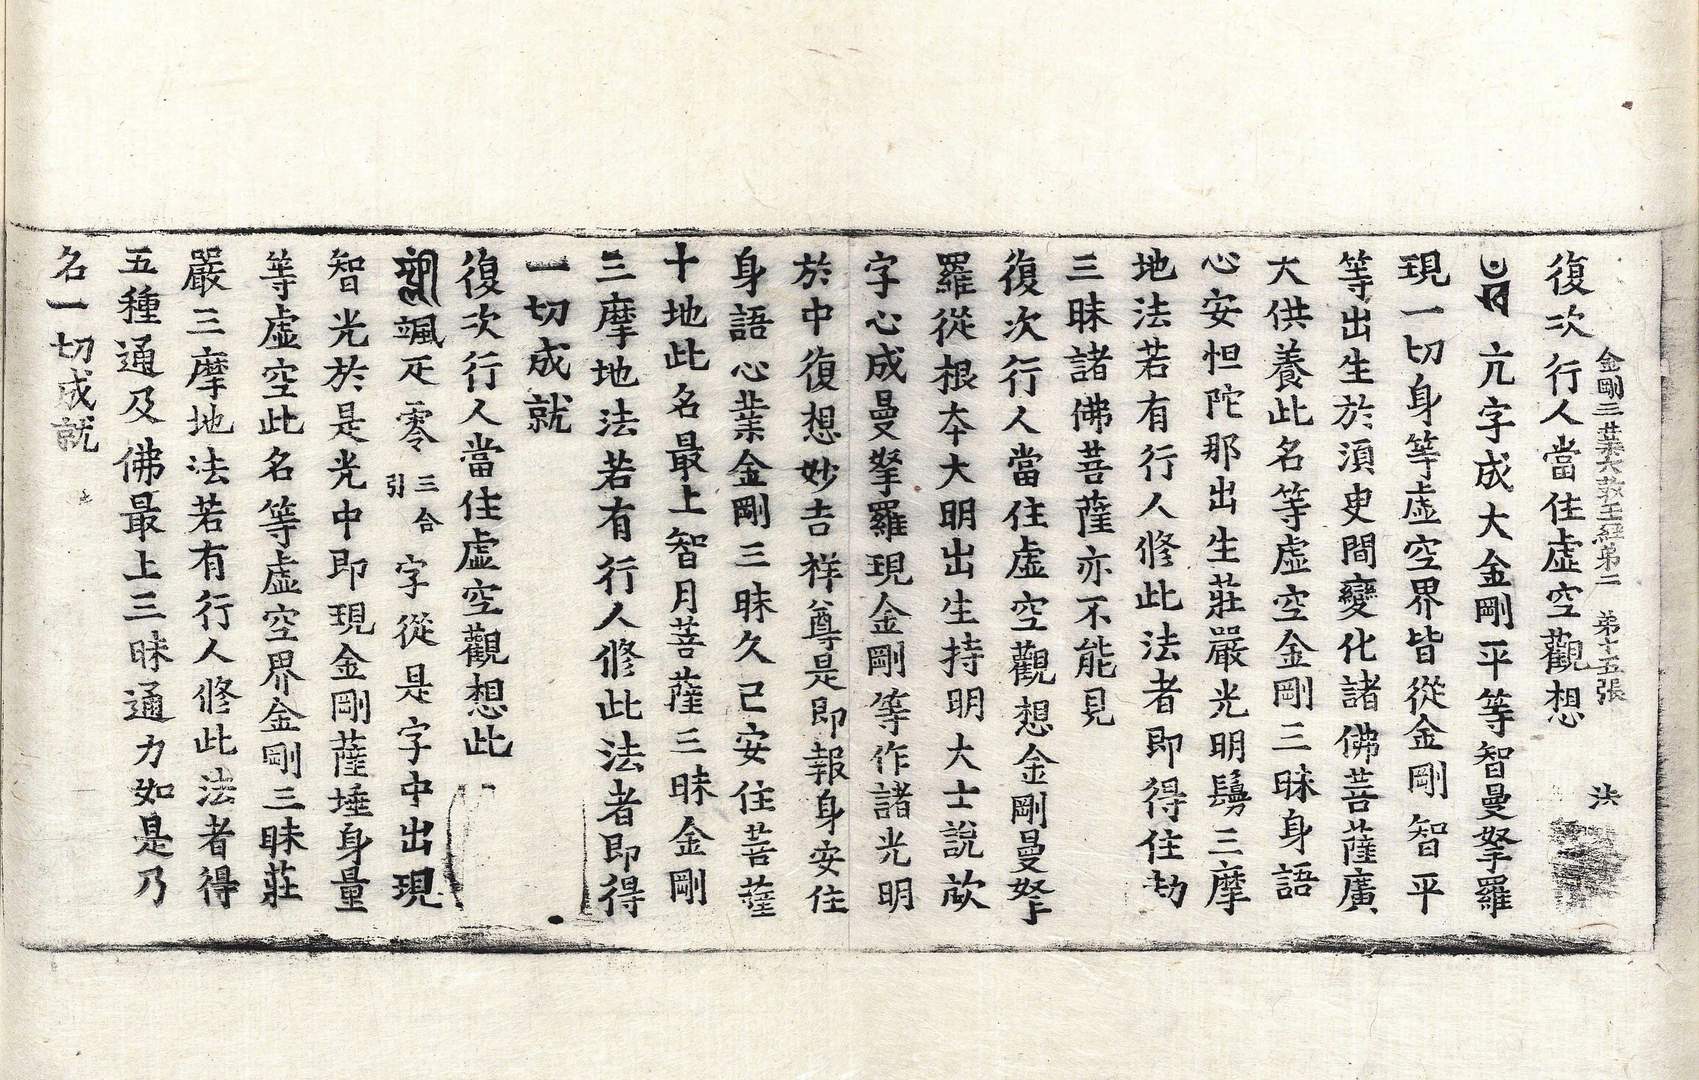 金剛三業大教王經第二　第十五張　法
復次行人當住虛空觀想
亢字成大金剛平等智曼拏羅
現一切身等虛空界皆從金剛智平
等出生於湏臾間變化諸佛菩薩廣
大供養此名等虛空金剛三昧身語
心安怛陀那出生莊嚴光明鬘三摩
地法若有行人修此法者即得住劫
三昧諸佛菩薩亦不能見
復次行人當住虛空觀想金剛曼拏
羅從根本大明出生持明大士說
字心成曼拏羅現金剛等作諸光明
於中復想妙吉祥尊是即報身安住
身語心業金剛三昧久已安住菩薩
十地此名最上智月菩薩三昧金剛
三摩地法若有行人修此法者即得
一切成就
復次行人當住虛空觀想此
颯疋零三合引字從是字中出現
智光於是光中即現金剛薩埵身量
等虛空此名等虛空界金剛三昧莊
嚴三摩地法若有行人修此法者得
五種通及佛最上三昧通力如是乃
名一切成就